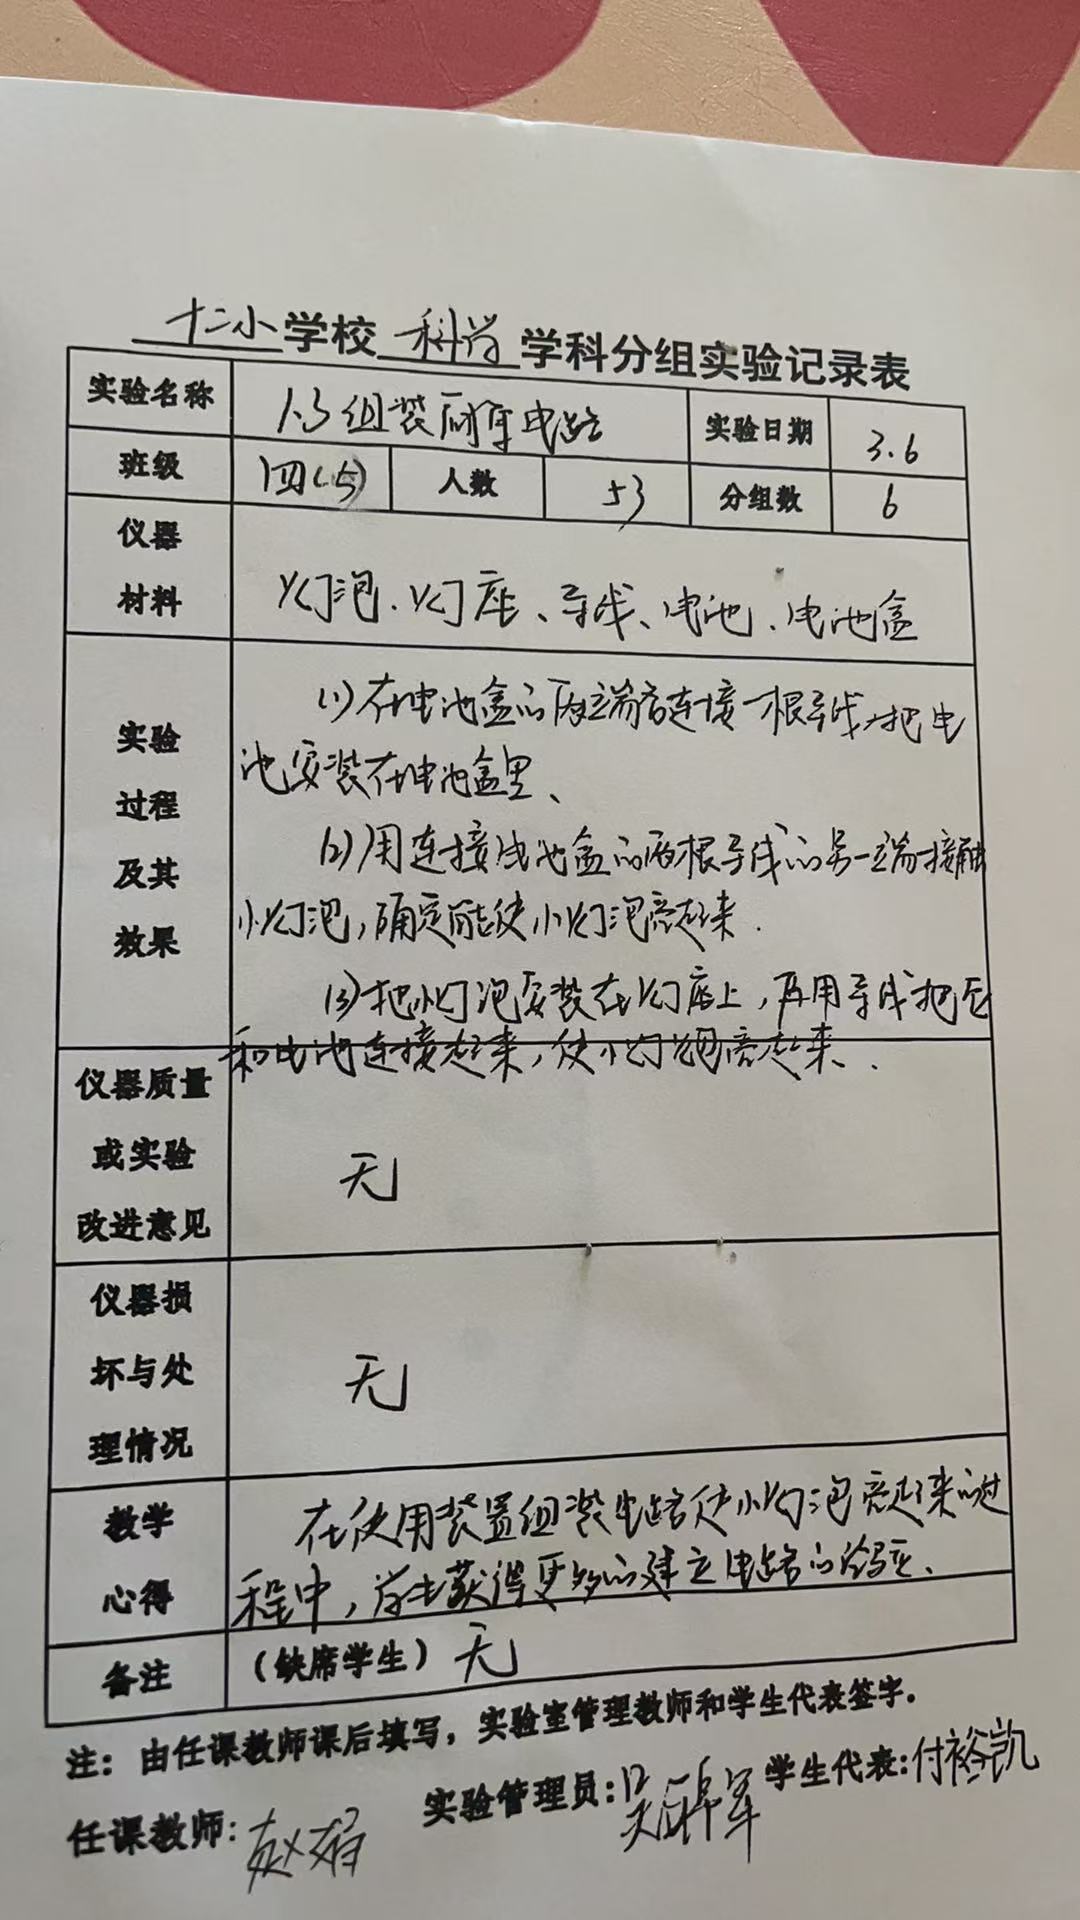 十二小学校 科学 学科分组实验记录表
实验名称 1.3组装简单电路 实验日期 3.6
班级 四(5) 人数 53 分组数 6
仪器
材料
灯泡、灯座、导线、电池、电池盒
实验
过程
及其
效果
(1)在电池盒的两端各连接一根导线,把电
池安装在电池盒里、
(2)用连接电池盒的两根导线的另一端接触
小灯泡,确定能使小灯泡亮起来.
(3)把小灯泡安装在灯座上,再用导线把它
和电池连接起来,使小灯泡亮起来.
仪器质量
或实验
改进意见
无
仪器损
坏与处
理情况
无
教学
心得
在使用装置组装电路使小灯泡亮起来的过
程中,学生获得更多的建立电路的经验.
备注 (缺席学生) 无
注:由任课教师课后填写,实验室管理教师和学生代表签字。
任课教师: 赵娟 实验管理员: 吴 军 学生代表: 付裕凯